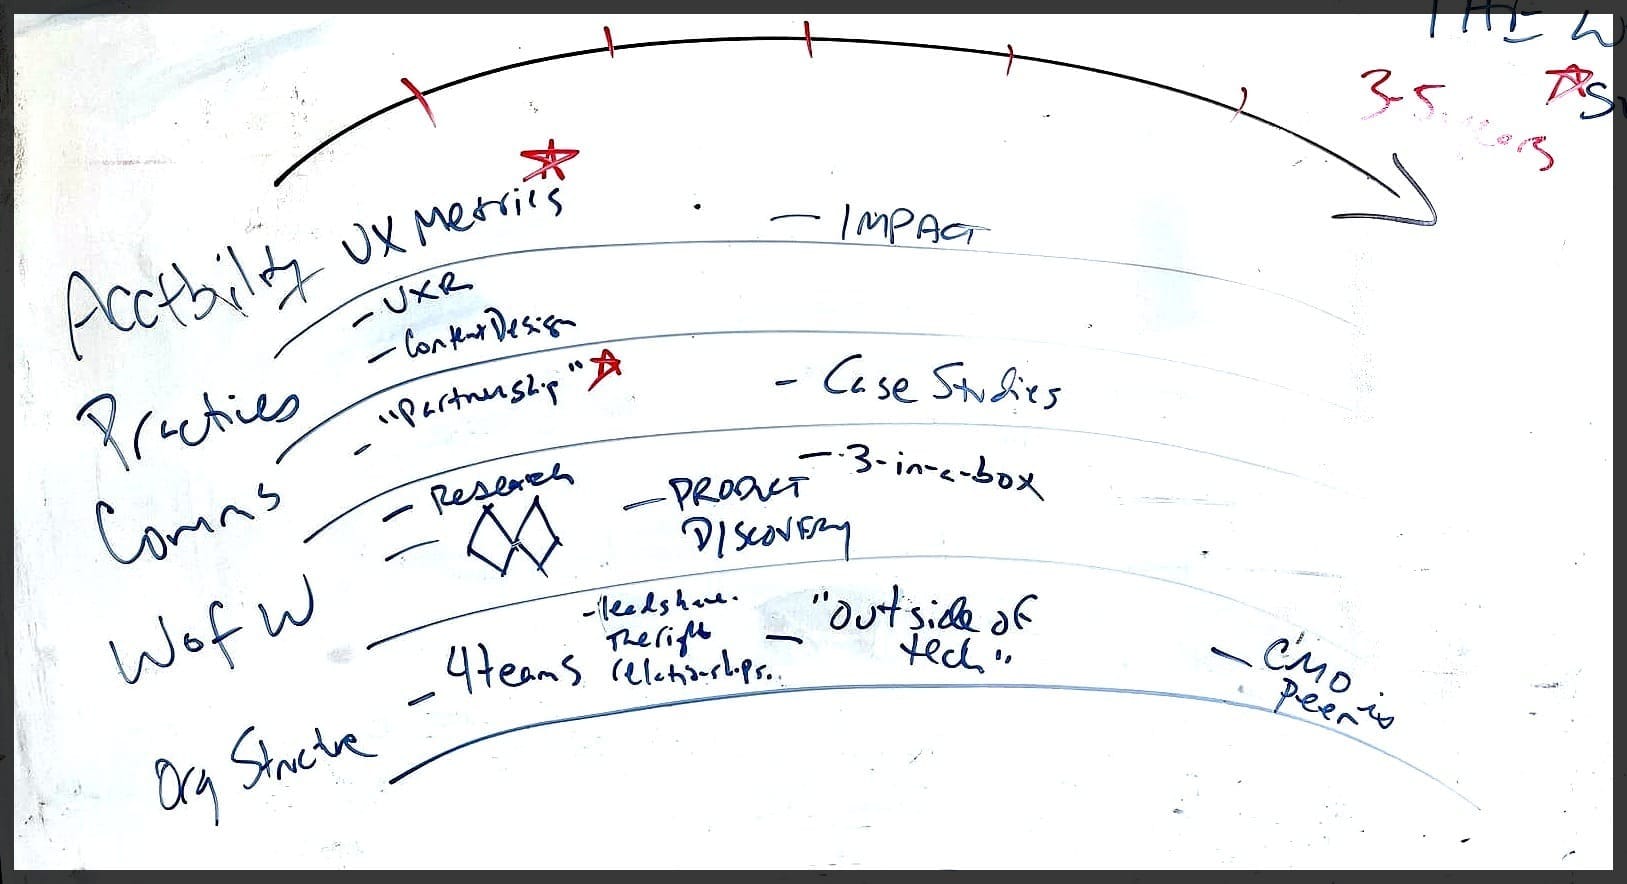 THE W
3-5 years
Acctbility UX Metrics
- IMPACT
- UXR
- Content Design
Practices
- "Partnership"
- Case Studies
Comms
- Research
- PRODUCT
DISCOVERY
- 3-in-a-box
W of W
- 4 teams
The right
relationships.
- "Outside of
tech"
- CMO
Org Structre